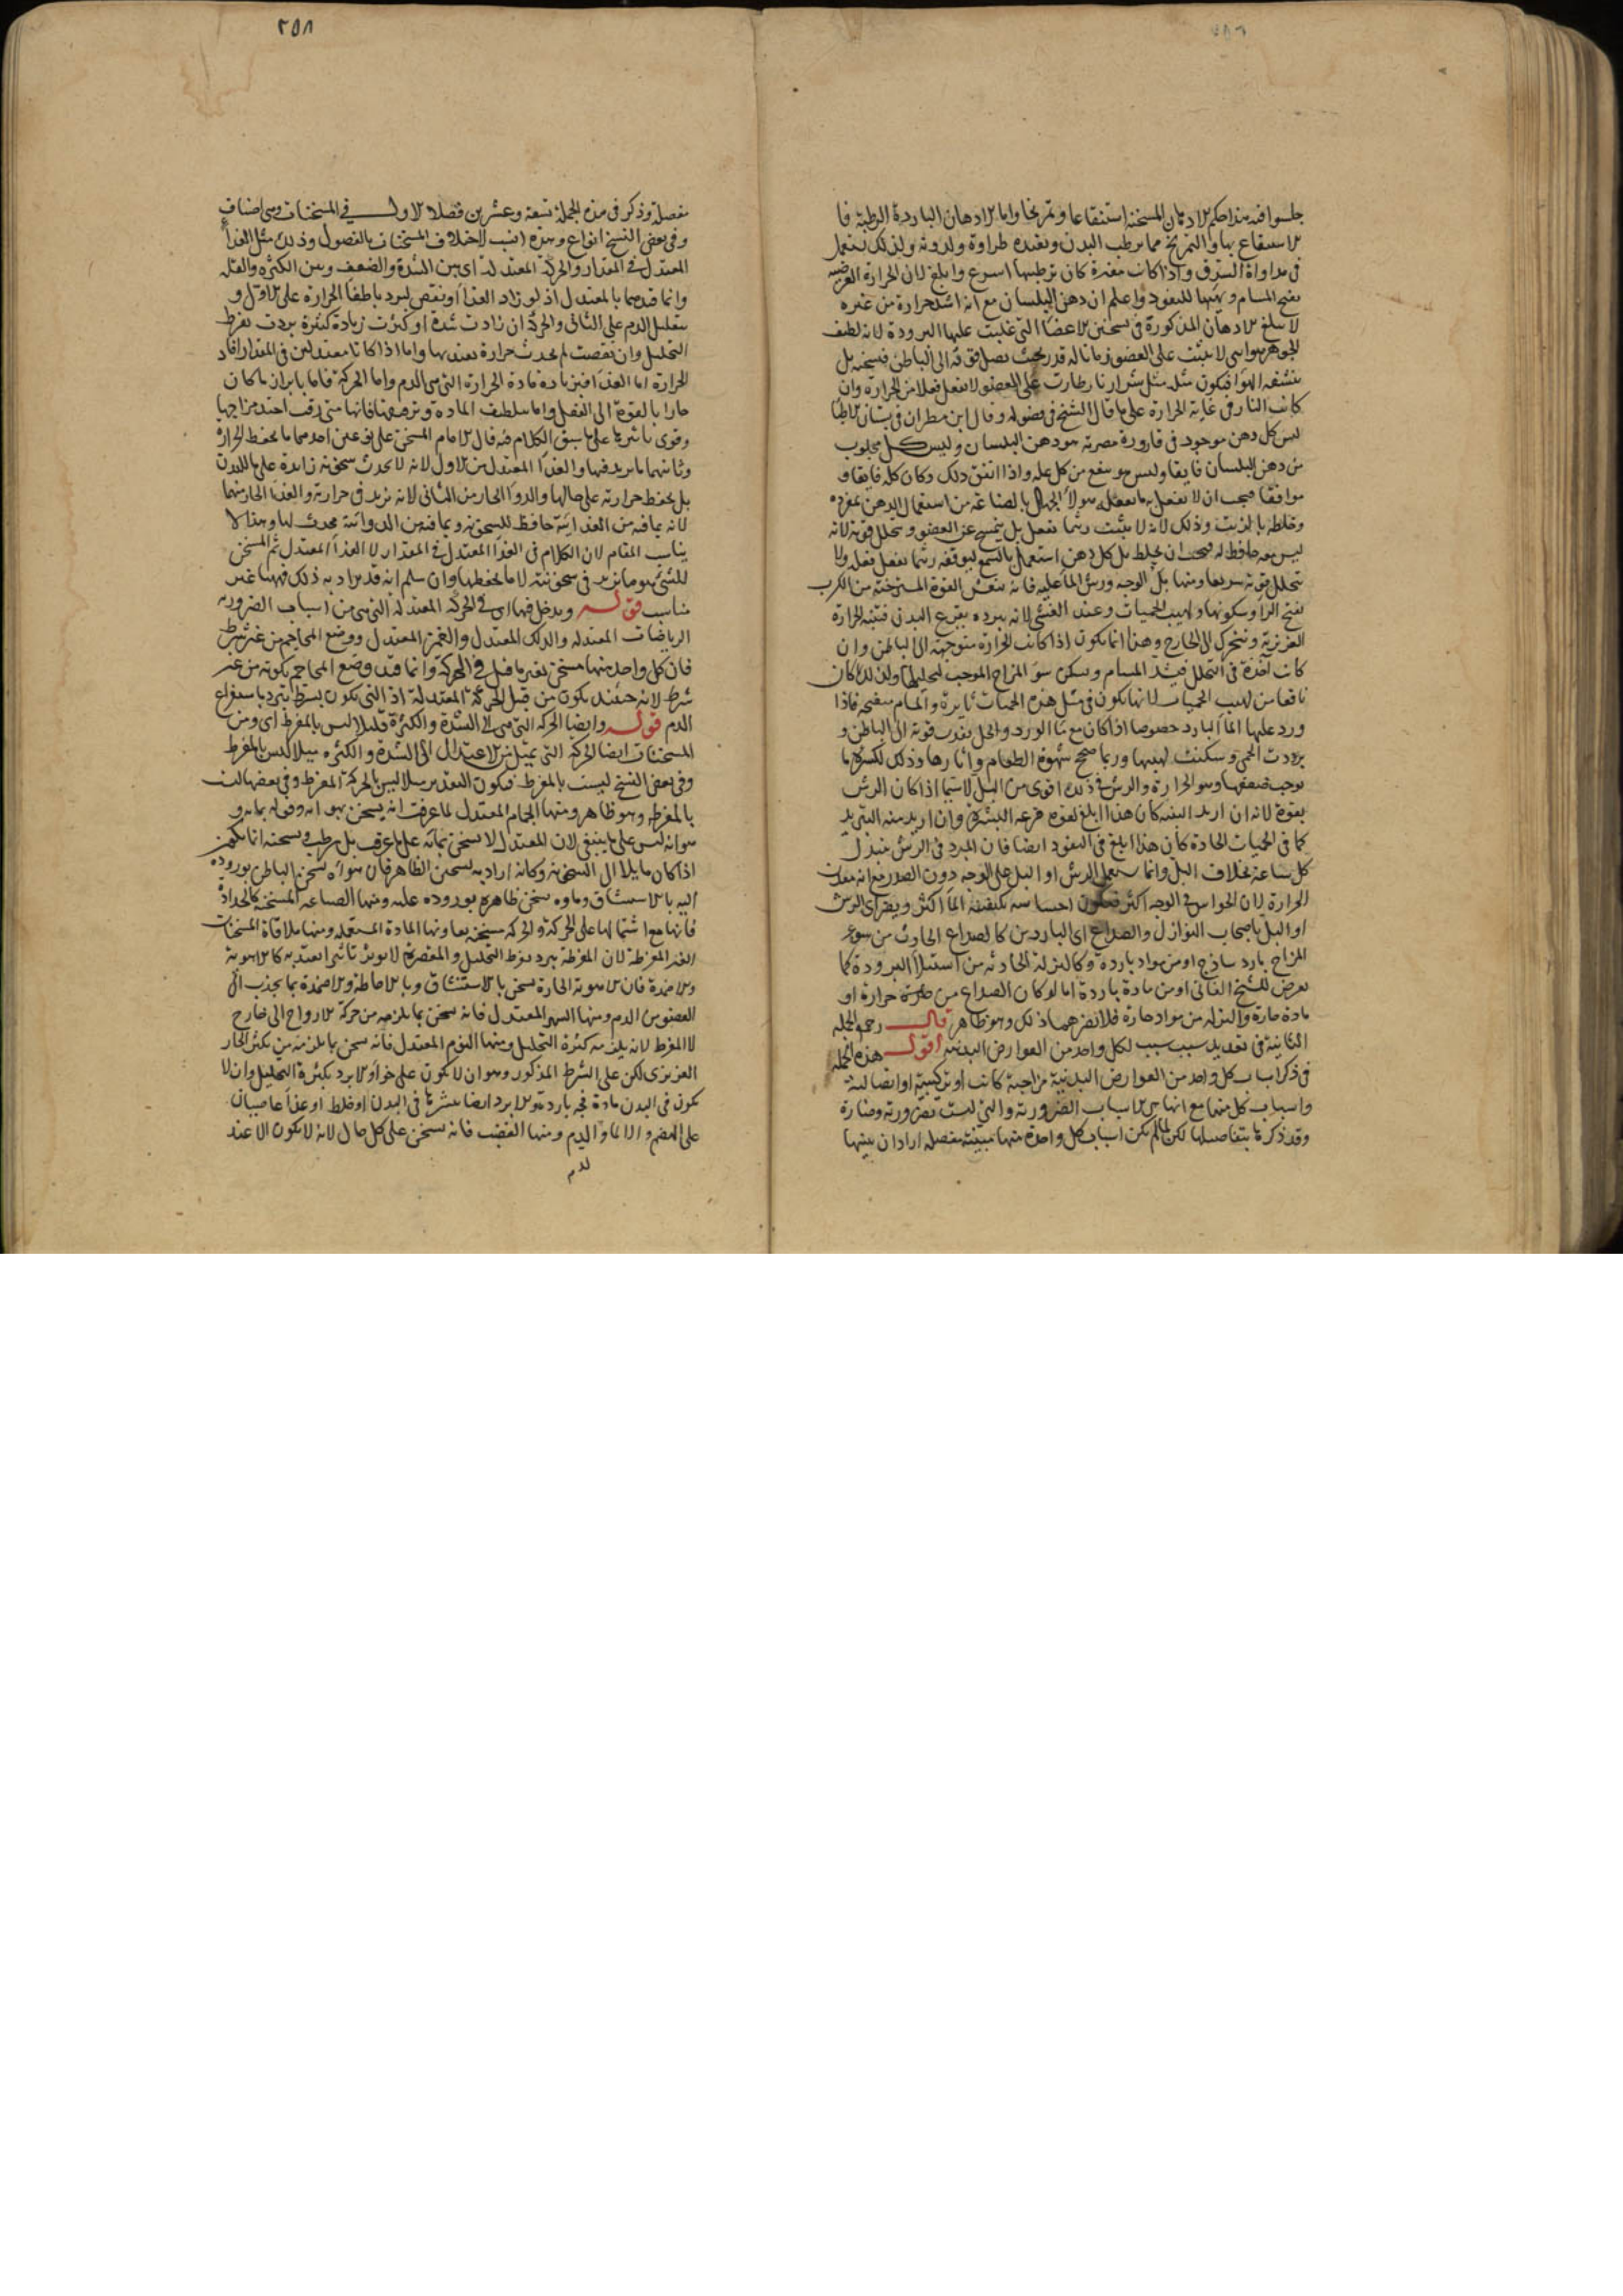 جلسوا فيه هذا حكم الادهان المسخنة استنقاعا وتمريخا واما الادهان الباردة الرطبة فا
لاستنقاع بها والتمريخ مما يرطب البدن ويفيده طراوة ولدونة ولذلك تستعمل
في مداواة الدق واذا كانت مفترة كان ترطيبها اسرع وابلغ لان الحرارة العرضية
تفتح المسام وتهيئها للنفوذ واعلم ان دهن البلسان مع انه اشد حرارة من غيره
لا يبلغ الادهان المذكورة في تسخين الاعضا التي غلبت عليها البرودة لانه لطيف
الجوهر هوائي لا يثبت على العضو زمانا له قدر بحيث يصل قوته الى الباطن فيسخنه بل
ينشفه الهوا فيكون مثله مثل شرار نار طارت على العضو لا تفعل فعلا من الحرارة وان
كانت النار في غاية الحرارة على ما قال الشيخ في فصوله وقال ابن مطران في بستان الاطبا
ليس كل دهن موجود في قارورة مصرية هو دهن البلسان وليس كل مجلوب
من دهن البلسان فايقا وليس هو ينفع من كل علة واذا اتفق ذلك وكان كله فايقا و
موافقا فيجب ان لا تفعل ما يفعله هولا الجهال بالصناعة من استعمال الدهن بمفرده
وخلطه بالزيت وذلك لانه لا يثبت ريثما يفعل بل ينمسح عن العضو وتتحلل قوته لانه
ليس معه حافظ له فيجب ان يخلط بل كل دهن استعمل بالشمع ليوقفه ريثما يفعل فعله ولا
تتحلل قوته سريعا ومنها بل الوجه ورش الما عليه فانه ينعش القوة المسترخية من الكرب
بفتح الرا وسكونها ولهيب الحميات وعند الغشي لانه ببرده يقرع البدن فتنبه الحرارة
الغريزية وتتحرك الى الخارج وهذا انما يكون اذا كانت الحرارة متوجهة الى الباطن وان
كانت آخذة في التحلل فيشد المسام ويسكن سو المزاج الموجب لتحليلها ولذلك كان
نافعا من لهيب الحميات لانها تكون في مثل هذه الحميات ثايرة والمسام منفتحة فاذا
ورد عليها الما البارد خصوصا اذا كان مع ما الورد والخل نفذت قوته الى الباطن و
بردت الحمى وسكنت لهيبها وربما صحح شهوة الطعام واثارها وذلك لكسره ما
يوجب ضعفها وهو الحرارة والرش في ذلك اقوى من البل لاسيما اذا كان الرش
بقوة لانه ان اريد التنبيه كان هذا ابلغ لقوة قرعه البشرة وان اريد منه التبريد
كما في الحميات الحادة كان هذا ابلغ في النفوذ ايضا فان المبرد في الرش متبدل
كل ساعة بخلاف البل وانما يستعمل الرش او البل على الوجه دون الصدر مع انه معدن
الحرارة لان الحواس في الوجه اكثر فيكون احساسه بكيفية الما اكثر ويضر اي الرش
او البل باصحاب النوازل والصداع اي الباردين كالصداع الحادث من سوء
المزاج بارد ساذج او من مواد باردة وكالنزلة الحادثة من استيلا البرودة كما
تعرض للشيخ الفاني او من مادة باردة اما لو كان الصداع من حرارة او
مادة حارة والنزلة من مواد حارة فلا يضرهما ذلك وهو ظاهر قال رحمه الجملة
الثانية في تعديد سبب سبب لكل واحد من العوارض البدنية اقول هذه الجملة
في ذكر اسباب كل واحد من العوارض البدنية مزاجية كانت او تركيبية او اتصالية
واسباب كل منها مع انها من الاسباب الضرورية والتي ليست بضرورية وضارة
وقد ذكرها بتفاصيلها لكن لما لم يكن اسباب كل واحدة منها مبينة مفصلة اراد ان يبينها
٢٥٨
مفصلة وذكر في هذه الجملة تسعة وعشرين فصلا الاول في المسخنات وهي اصناف
وفي بعض النسخ انواع وهذه انسب لاختلاف المسخنات بالفصول وذلك مثل الغذا
المعتدل في المقدار والحركة المعتدلة اي بين الشدة والضعف وبين الكثرة والقلة
وانما قيدهما بالمعتدل اذ لو زاد الغذا او نقص لبرد باطفا الحرارة على الاول و
بتقليل الدم على الثاني والحركة ان زادت شدة او كثرت زيادة كثيرة بردت بفرط
التحليل وان نقصت لم تحدث حرارة يعتد بها واما اذا كانا معتدلين في المقدار افاد
الحرارة اما الغذا فبزيادة مادة الحرارة التي هي الدم واما الحركة فاما بابراز ما كان
حارا بالقوة الى الفعل واما بتلطيف المادة وترقيقها فانها متى رقت احتد مزاجها
وقوى تاثيرها على ما سبق الكلام فيه قال الامام المسخن على نوعين احدهما ما يحفظ الحرارة
وثانيهما ما يزيد فيها والغذا المعتدل من الاول لانه لا يحدث سخونة زايدة على ما للبدن
بل يحفظ حرارته على حالها والدوا الحار من الثاني لانه يزيد في حرارته والغذا الحار منهما
لانه بما فيه من الغذائية حافظ للسخونة وبما فيه من الدوائية محدث لها وهذا لا
يناسب المقام لان الكلام في الغذا المعتدل في المقدار لا الغذا المعتدل ثم المسخن
للشئ هو ما يزيد في سخونته لا ما يحفظها وان سلم انه قد يراد به ذلك فههنا غير
مناسب قوله ويدخل فيها اي في الحركة المعتدلة التي هي من اسباب الضرورية
الرياضات المعتدلة والدلك المعتدل والغمز المعتدل ووضع المحاجم من غير شرط
فان كل واحد منها مسخن لغير ما قيل في الحركة وانما قيد وضع المحاجم بكونه من غير
شرط لانه حينئذ يكون من قبل الحركة المعتدلة اذ التي تكون بشرط تبرد باستفراغ
الدم قوله وايضا الحركة التي هي الى الشدة والكثرة قليلا ليس بالمفرط اي ومن
المسخنات ايضا الحركة التي تميل من الاعتدال الى الشدة والكثرة ميلا ليس بالمفرط
وفي بعض النسخ ليست بالمفرط فيكون التقدير ميلا ليس بالحركة المفرط وفي بعضها ليست
بالمفرطة وهو ظاهر ومنها الحمام المعتدل لما عرفت انه يسخن بهوائه وقوله بمائه و
هوائه ليس على ما ينبغي لان المعتدل لا يسخن بمائه على ما عرف بل يرطب وتسخينه انما يكون
اذا كان مايلا الى السخونة وكانه اراد به تسخين الظاهر فان هواه يسخن الباطن بوروده
اليه بالاستنشاق وماوه يسخن ظاهره بوروده عليه ومنها الصناعة المسخنة كالحدادة
فانها مع اشتمالها على الحركة والحركة مسخنة يعاونها المادة المستعملة ومنها ملاقاة المسخنات
الغير المفرطة لان المفرطة تبرد بفرط التحليل والمقصرة لا يوثر تاثيرا يعتد به كالاهوية
والاضمدة فان الاهوية الحارة تسخن بالاستنشاق وبالاحاطة والاضمدة بما يجذب الى
العضو من الدم ومنها السهر المعتدل فانه يسخن بما يلزمه من حركة الارواح الى خارج
لا المفرط لانه يلزمه كثرة التحليل ومنها النوم المعتدل فانه يسخن بما يلزمه من تكثر الحار
الغريزي لكن على الشرط المذكور وهو ان لا يكون على خواء والا برد بكثرة التحليل وان لا
يكون في البدن مادة فجة باردة والا برد ايضا بنشرها في البدن او خلط او غذا عاصيان
على الهضم والا الدم ومنها الغضب فانه يسخن على كل حال لانه لا يكون الا عند